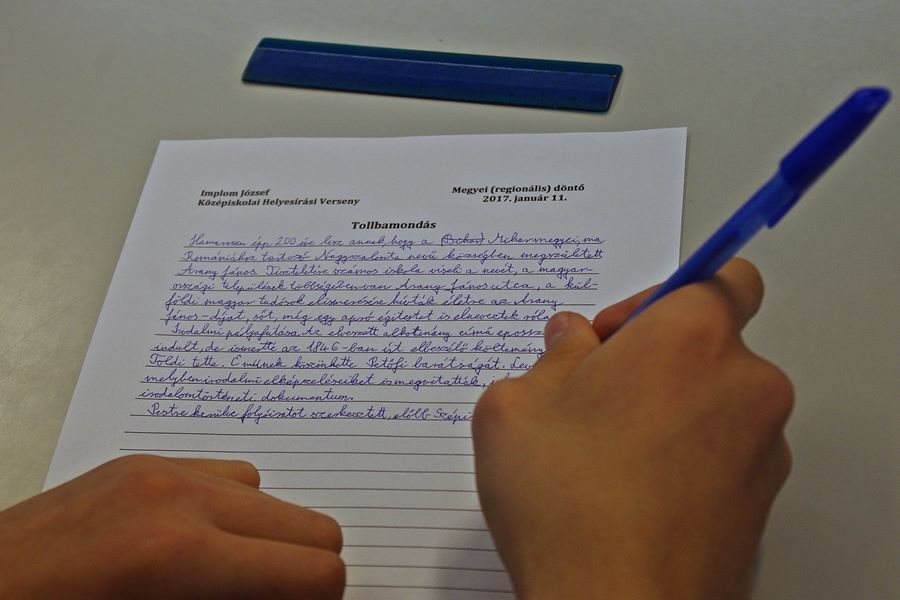 Implom József
Középiskolai Helyesírási Verseny
Megyei (regionális) döntő
2017. január 11.
Tollbamondás
Hamarosan épp 200 éve lesz annak, hogy a Biharmegyei, ma
Romániához tartozó Nagyszalonta nevű községben megszületett
Arany János. Tiszteletére számos iskola viseli a nevét, a magyar-
országi települések többségében van Arany János utca, a kül-
földi magyar tudósok elismerésére hívták életre az Arany
János-díjat, sőt, még egy apró égitestet is elneveztek róla.
Irodalmi pályafutása Az elveszett alkotmány című epossz
indult, de ismertté az 1846-ban írt elbeszélő költemény
Toldi tette. E műnek köszönhette Petőfi barátságát. Lev
melyben irodalmi elképzeléseiket is megvitatták, i
irodalomtörténeti dokumentum.
Pestre kerülve folyóiratot szerkesztett, előbb Szépi